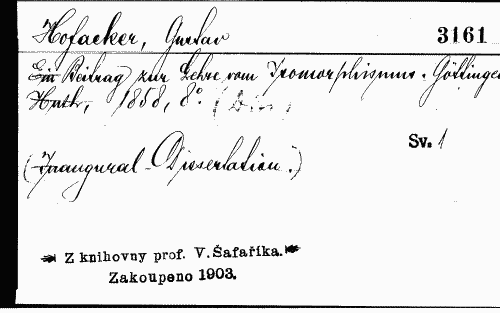 Hofacker, Gustav 3161
Ein Beitrag zur Lehre vom Isomorphismus. Göttingen
Huth, 1858, 8° (Diss.)
Sv. 1
(Inaugural-Dissertation.)
Z knihovny prof. V. Šafaříka.
Zakoupeno 1903.